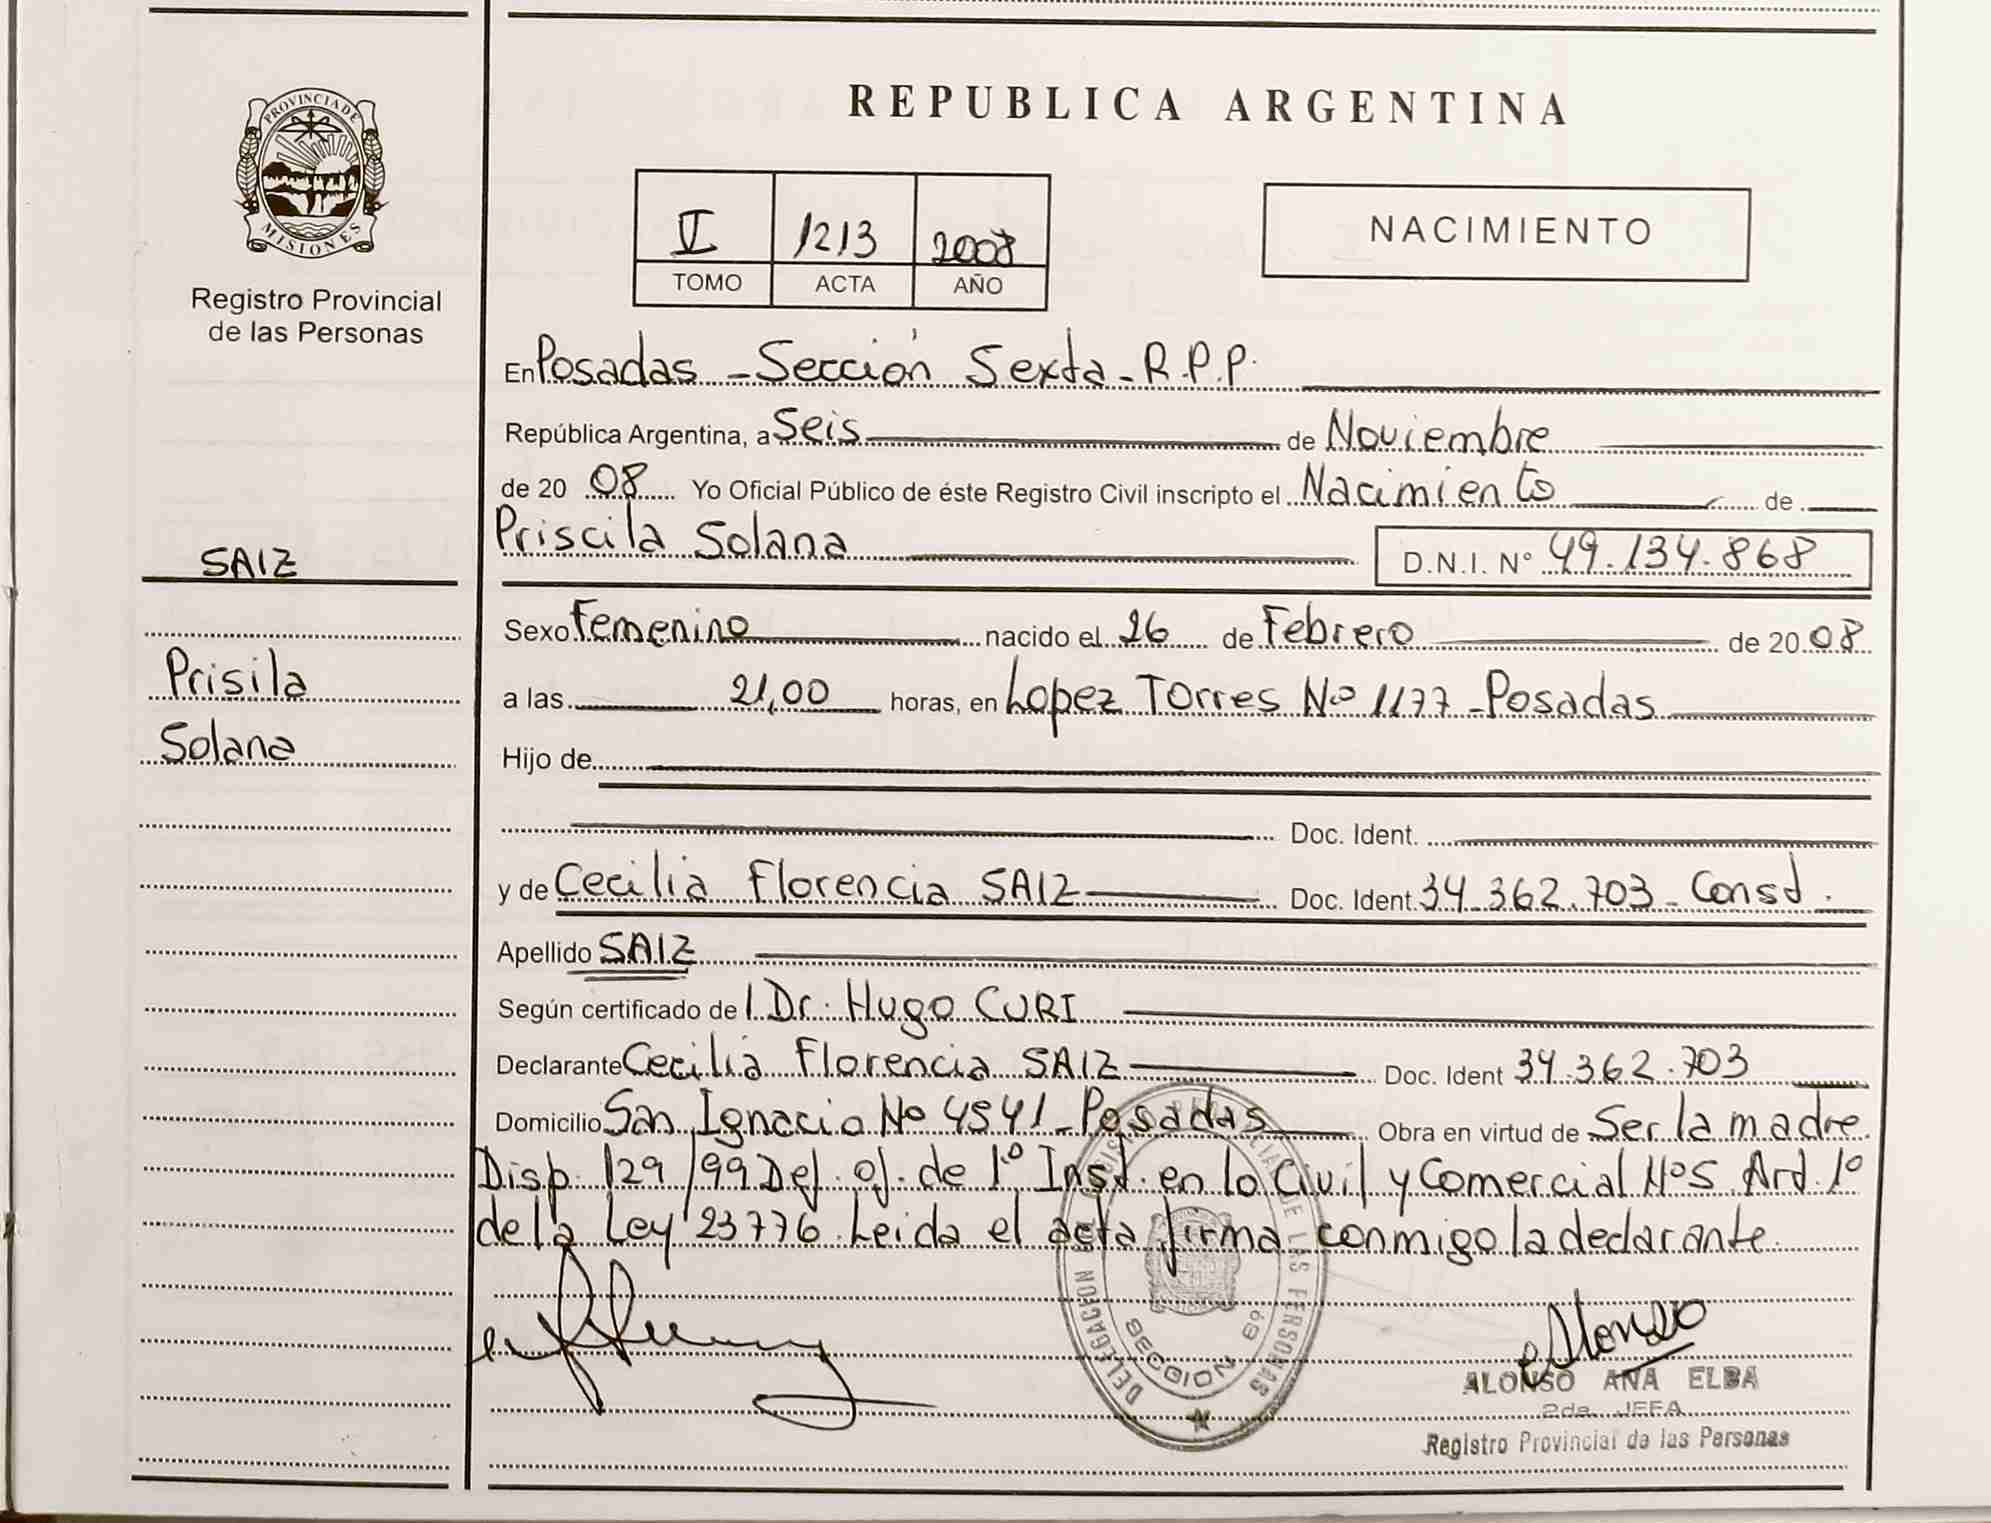 PROVINCIA DE
MISIONES
Registro Provincial
de las Personas
SAIZ
Prisila
Solana
REPUBLICA ARGENTINA
V 1213 2008
TOMO ACTA AÑO
NACIMIENTO
En Posadas - Sección Sexta - R.P.P.
República Argentina, a Seis de Noviembre
de 20 08 Yo Oficial Público de éste Registro Civil inscripto el Nacimiento de
Priscila Solana D.N.I. Nº 49.134.868
Sexo Femenino nacido el 26 de Febrero de 20 08
a las 21,00 horas, en Lopez Torres Nº 1177 - Posadas
Hijo de
Doc. Ident.
y de Cecilia Florencia SAIZ Doc. Ident. 34.362.703 - Const.
Apellido SAIZ
Según certificado de l Dr. Hugo CURI
Declarante Cecilia Florencia SAIZ Doc. Ident 34.362.703
Domicilio San Ignacio Nº 4541 - Posadas Obra en virtud de Ser la madre
Disp. 129/99 Def. of. de 1º Inst. en lo Civil y Comercial Nº 5 Art. 1º
de la Ley 23776. Leida el acta firma conmigo la declarante.
DELEGACION
DE LAS PERSONAS
SECCION 6ª
eAlonso
ALONSO ANA ELBA
2da. JEFA
Registro Provincial de las Personas